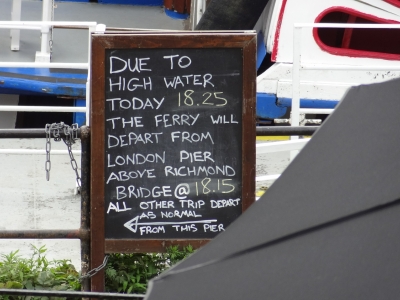 DUE TO
HIGH WATER
TODAY 18.25
THE FERRY WILL
DEPART FROM
LONDON PIER
ABOVE RICHMOND
BRIDGE @ 18.15
ALL OTHER TRIP DEPART
AS NORMAL
FROM THIS PIER